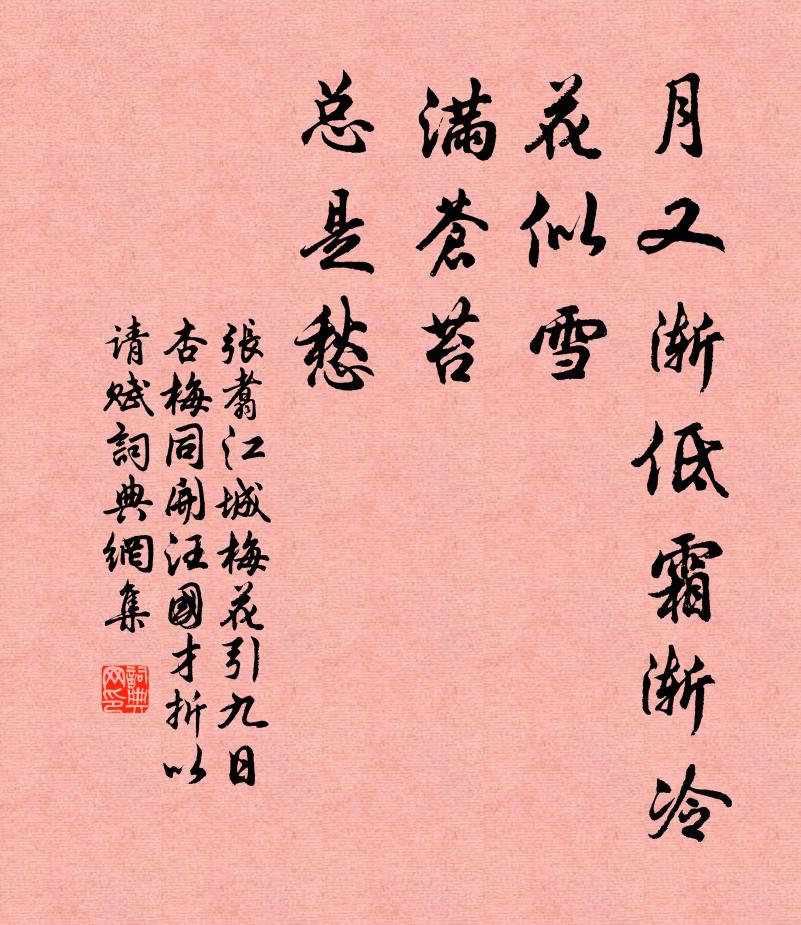 月又渐低霜渐冷
花似雪
满苍苔
总是愁
張翥江城梅花引九日
杏梅同開汪國才折以
请赋詞典網集
詞典网印